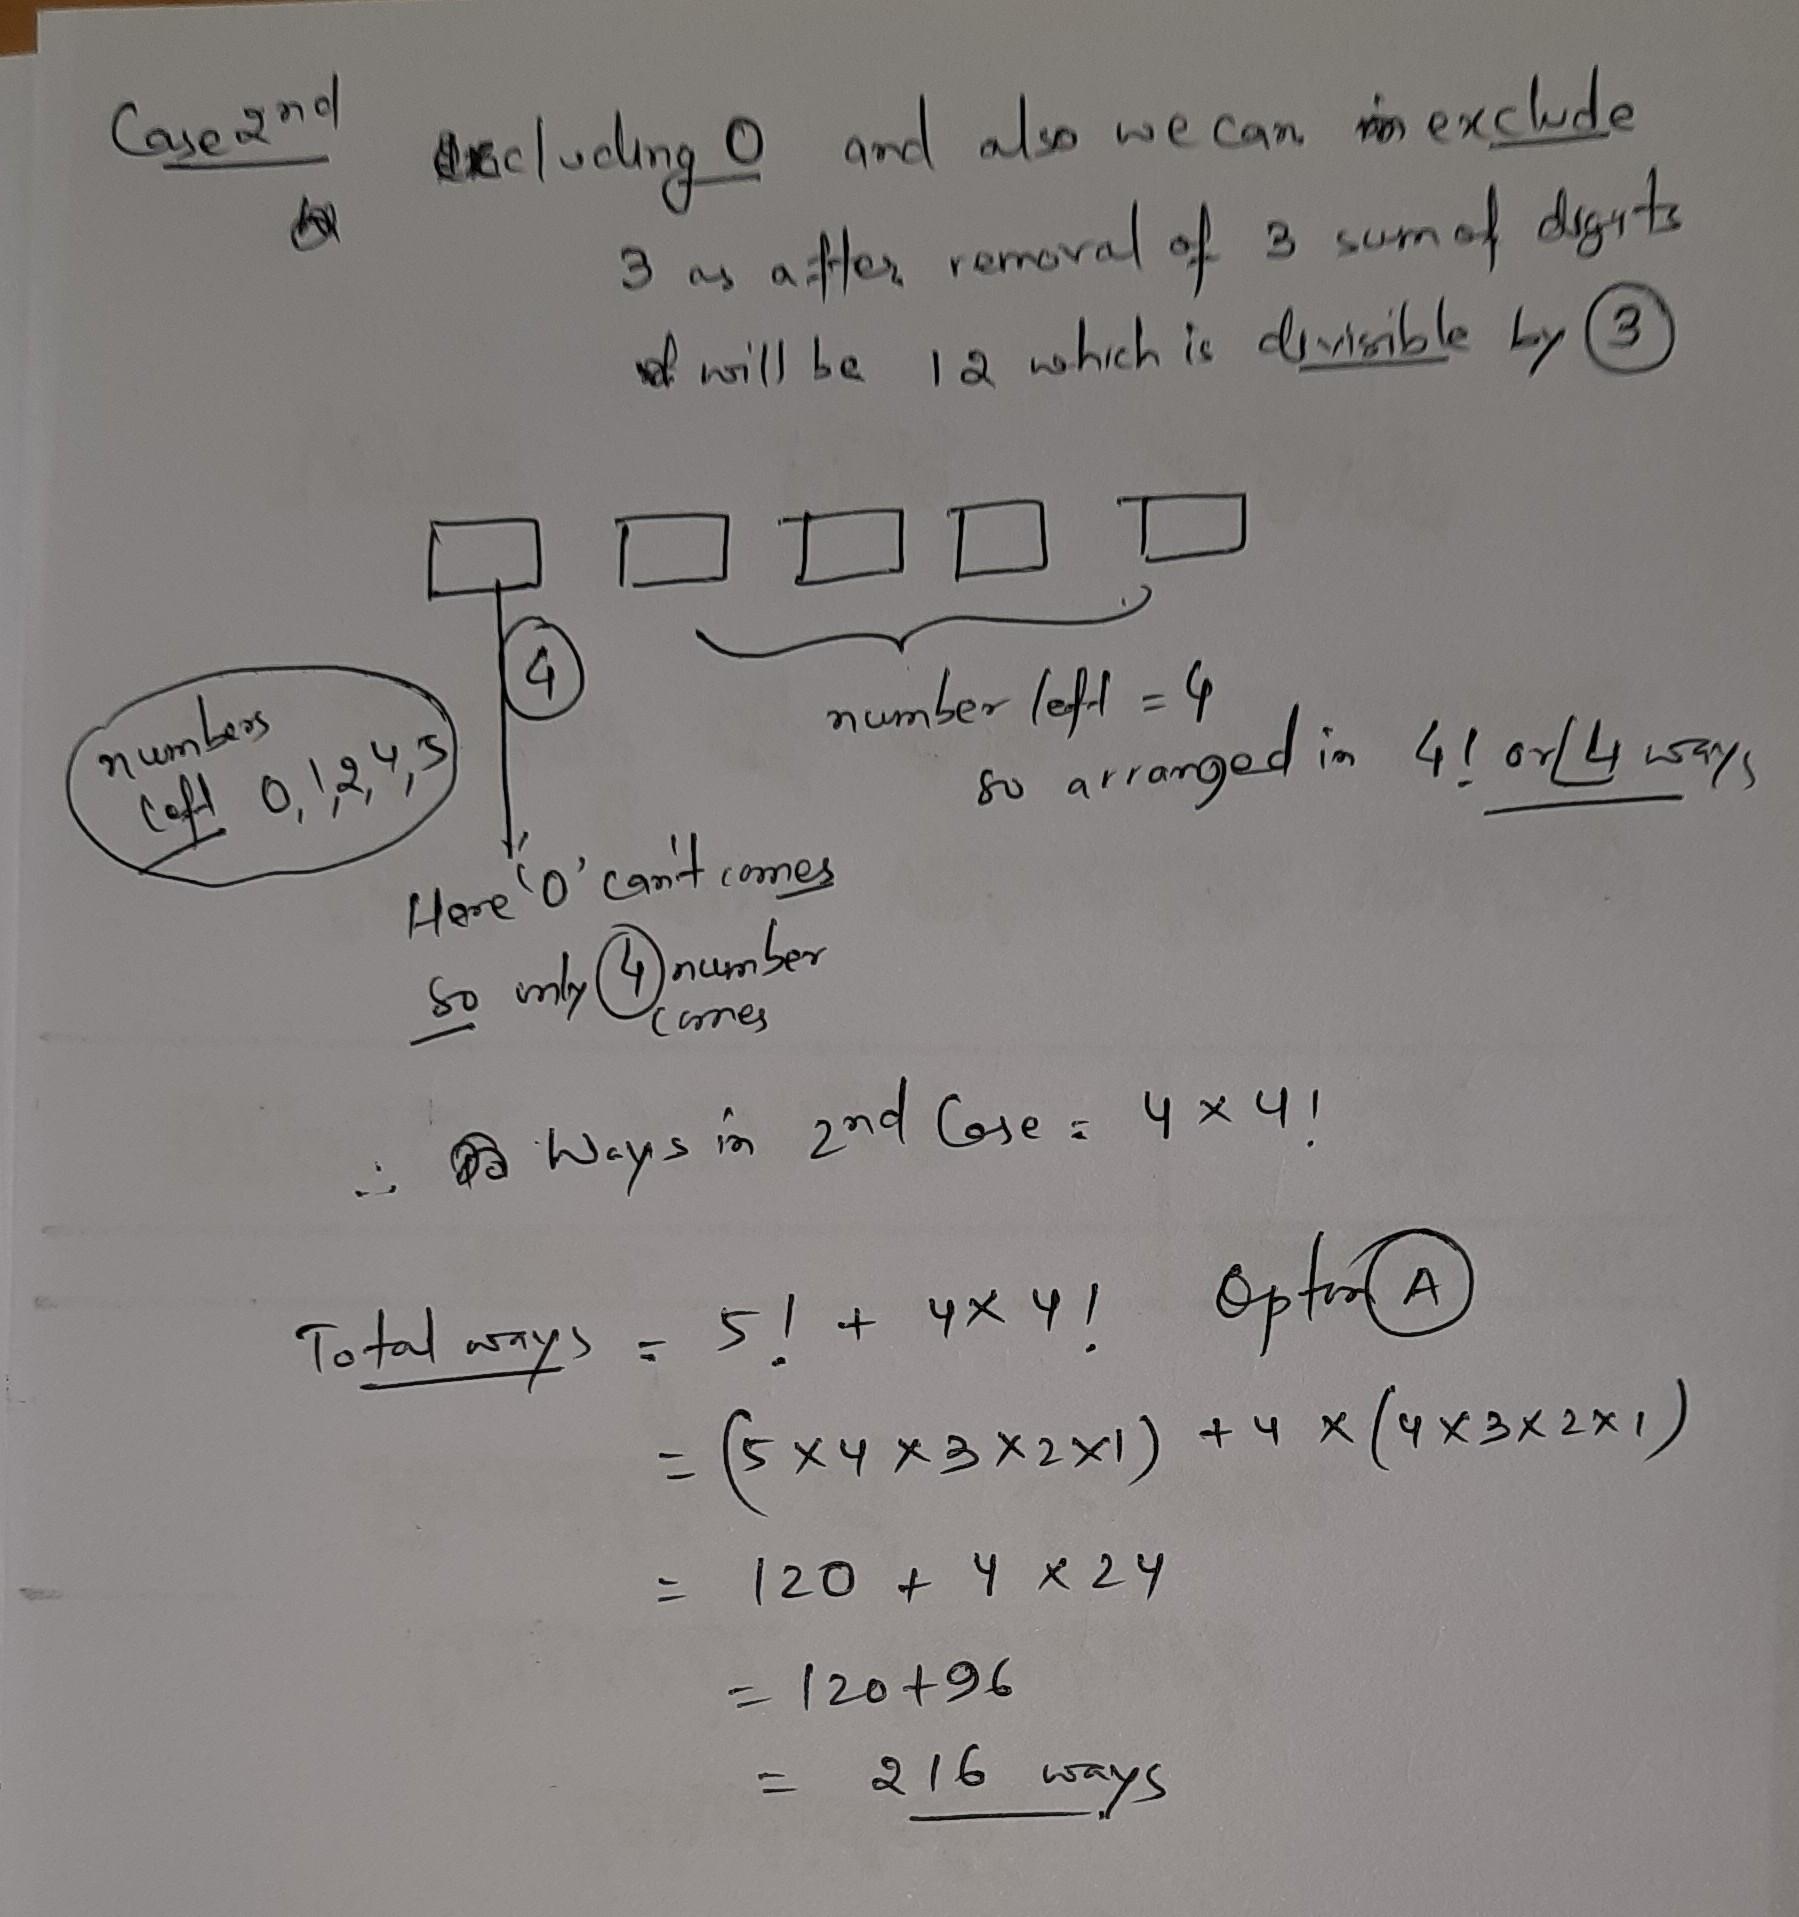 Case 2nd
Including 0 and also we can exclude
3 as after removal of 3 sum of digits
will be 12 which is divisible by 3
4
number left = 4
so arranged in 4! or ∟4 ways
numbers
left 0, 1, 2, 4, 5
Here '0' can't comes
So only 4 number
comes
∴ Ways in 2nd Case = 4 × 4!
Total ways = 5! + 4 × 4! Option A
= (5 × 4 × 3 × 2 × 1) + 4 × (4 × 3 × 2 × 1)
= 120 + 4 × 24
= 120 + 96
= 216 ways